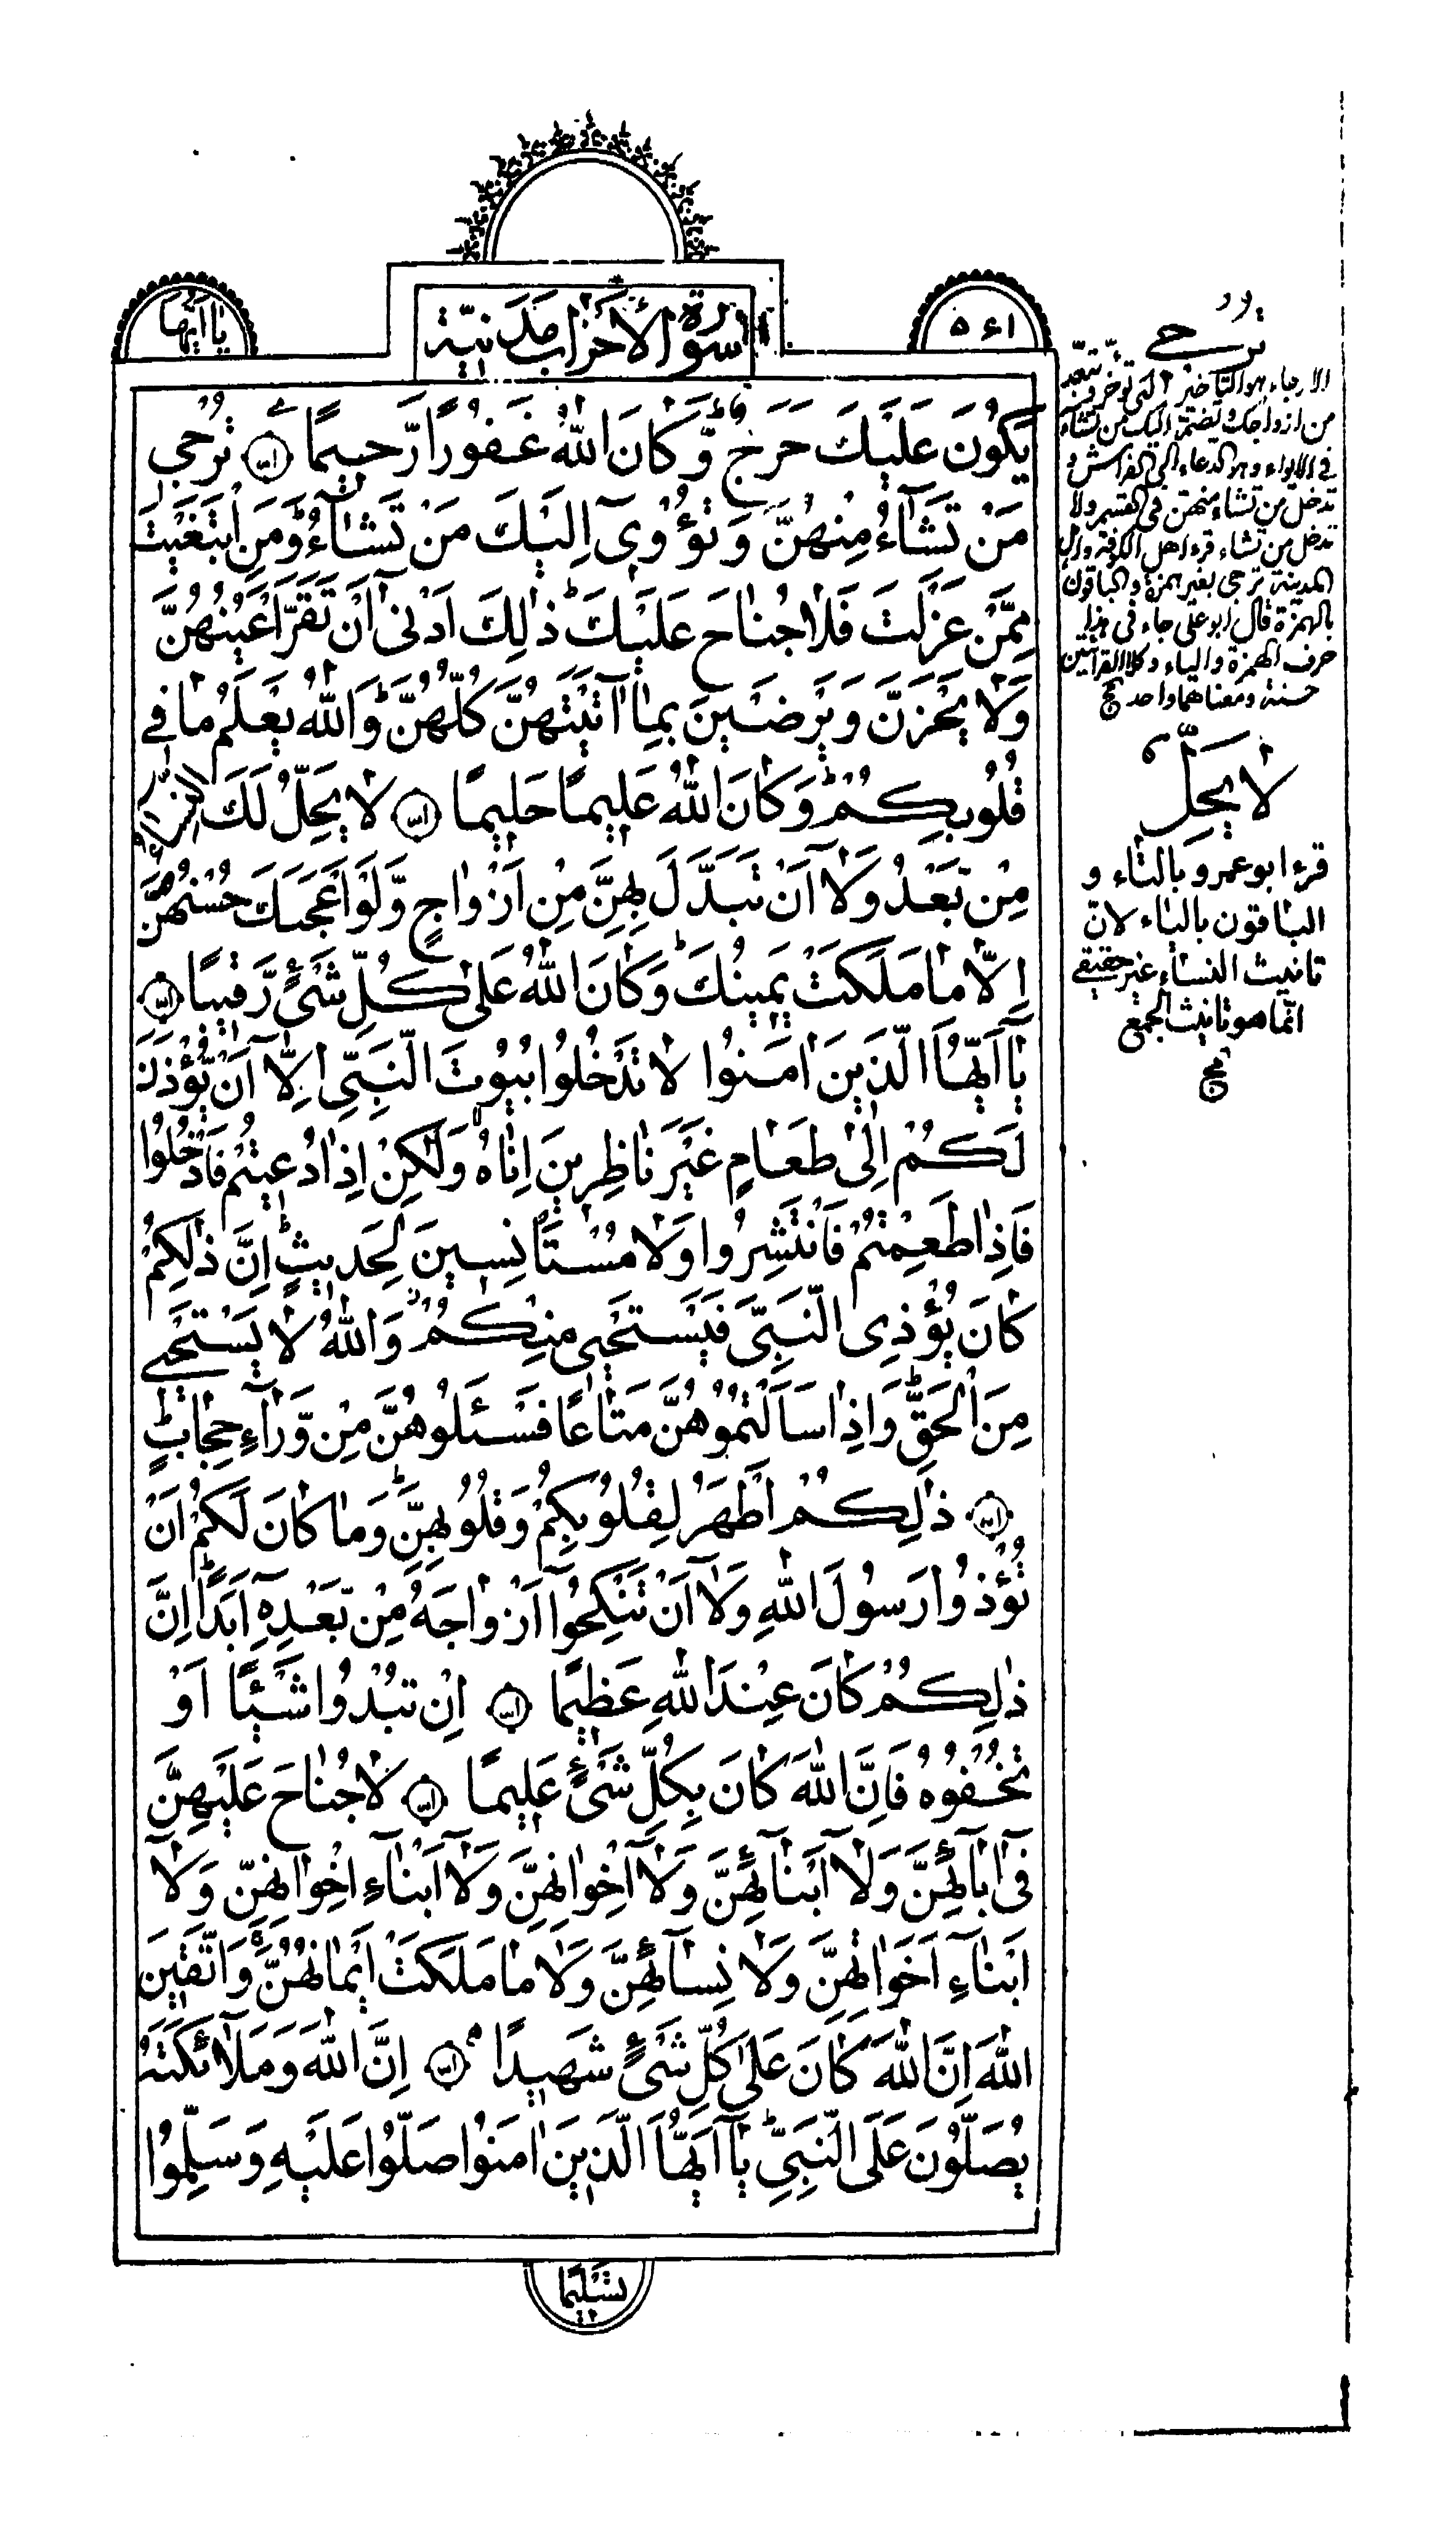 ٥٤١
سورة الاحزاب مدنية
يا ايها
يَكُونَ عَلَيْكَ حَرَجٌ ط وَّكَانَ اللّٰهُ غَفُورًا رَّحيمًا تُرْجي
مَنْ تَشَاۤءُ مِنْهُنَّ وَتُؤْوِىۤ اِلَيْكَ مَنْ تَشَاۤءُ ط وَمَنِ ابْتَغَيْتَ
مِمَّنْ عَزَلْتَ فَلَا جُنَاحَ عَلَيْكَ ط ذٰلِكَ اَدْنىٰۤ اَنْ تَقَرَّ اَعْيُنُهُنَّ
وَلَا يَحْزَنَّ وَيَرْضَيْنَ بِمَاۤ اٰتَيْتَهُنَّ كُلُّهُنَّ ط وَاللّٰهُ يَعْلَمُ مَا في
قُلُوبِكُمْ ط وَكَانَ اللّٰهُ عَليمًا حَليمًا لَا يَحِلُّ لَكَ النِّسَاۤءُ
مِنْ بَعْدُ وَلَاۤ اَنْ تَبَدَّلَ بِهِنَّ مِنْ اَزْوَاجٍ وَّلَوْ اَعْجَبَكَ حُسْنُهُنَّ
اِلَّا مَا مَلَكَتْ يَمينُكَ ط وَكَانَ اللّٰهُ عَلىٰ كُلِّ شَىْءٍ رَّقيبًا
يَاۤ اَيُّهَا الَّذينَ اٰمَنُوا لَا تَدْخُلُوا بُيُوتَ النَّبِىِّ اِلَّاۤ اَنْ يُّؤْذَنَ
لَكُمْ اِلىٰ طَعَامٍ غَيْرَ نَاظِرينَ اِنٰاهُ وَلٰكِنْ اِذَا دُعيتُمْ فَادْخُلُوا
فَاِذَا طَعِمْتُمْ فَانْتَشِرُوا وَلَا مُسْتَأْنِسينَ لِحَديثٍ ط اِنَّ ذٰلِكُمْ
كَانَ يُؤْذِى النَّبِىَّ فَيَسْتَحْيى مِنْكُمْ وَاللّٰهُ لَا يَسْتَحْيي
مِنَ الْحَقِّ ط وَاِذَا سَاَلْتُمُوهُنَّ مَتَاعًا فَسْـَٔلُوهُنَّ مِنْ وَّرَاۤءِ حِجَابٍ ط
ذٰلِكُمْ اَطْهَرُ لِقُلُوبِكُمْ وَقُلُوبِهِنَّ ط وَمَا كَانَ لَكُمْ اَنْ
تُؤْذُوا رَسُولَ اللّٰهِ وَلَاۤ اَنْ تَنْكِحُوۤا اَزْوَاجَهُ مِنْ بَعْدِهۤ اَبَدًا ط اِنَّ
ذٰلِكُمْ كَانَ عِنْدَ اللّٰهِ عَظيمًا اِنْ تُبْدُوا شَيْئًا اَوْ
تُخْفُوهُ فَاِنَّ اللّٰهَ كَانَ بِكُلِّ شَىْءٍ عَليمًا لَا جُنَاحَ عَلَيْهِنَّ
فىۤ اٰبَاۤئِهِنَّ وَلَاۤ اَبْنَاۤئِهِنَّ وَلَاۤ اِخْوَانِهِنَّ وَلَاۤ اَبْنَاۤءِ اِخْوَانِهِنَّ وَلَاۤ
اَبْنَاۤءِ اَخَوَاتِهِنَّ وَلَا نِسَاۤئِهِنَّ وَلَا مَا مَلَكَتْ اَيْمَانُهُنَّ وَاتَّقينَ
اللّٰهَ اِنَّ اللّٰهَ كَانَ عَلىٰ كُلِّ شَىْءٍ شَهيدًا اِنَّ اللّٰهَ وَمَلَاۤئِكَتَهُ
يُصَلُّونَ عَلَى النَّبِىِّ ط يَاۤ اَيُّهَا الَّذينَ اٰمَنُوا صَلُّوا عَلَيْهِ وَسَلِّمُوا
تسليما
ترجي
الارجاء هو التأخير اى تؤخر وتبعد
من ازواجك وتضمّ اليك من تشاء
فى الايواء وهو الدعاء الى الفراش و
تدخل من تشاء منهن فى القسم ولا
تدخل من تشاء قرء اهل الكوفة واهل
المدينة ترجى بغير همزة والباقون
بالهمزة قال ابو على جاء فى هذا
حرف الهمزة والياء وكلا القرائتين
حسنة ومعناهما واحد مج
لا يحلّ
قرء ابو عمرو بالتاء و
الباقون بالياء لانّ
تانيث النساء غير حقيقي
انّما هو تانيث الجمع
مج